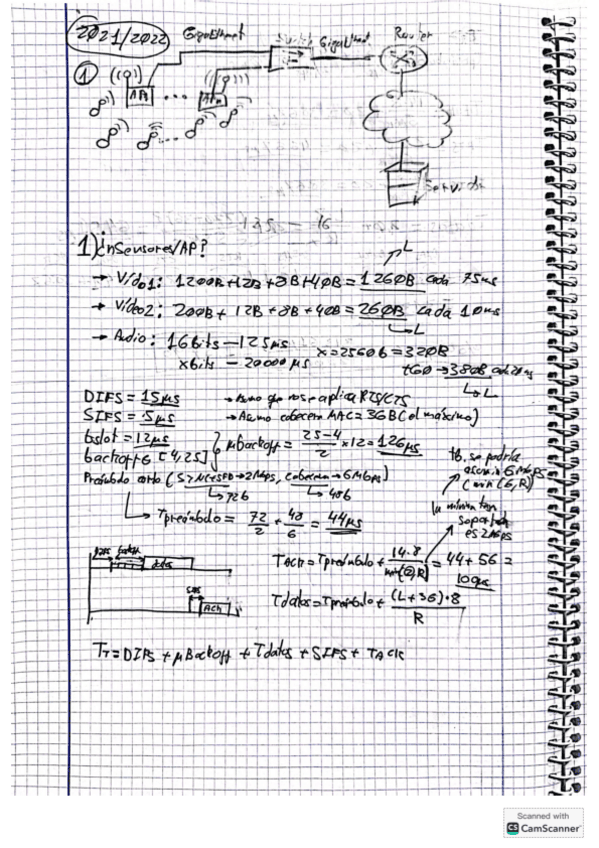 2021/2022 GigaEthernet Switch GigaEthernet Router
1
AP1 ... APn
Servidor
1) ¿nSensores/AP?
L
→ Vídeo1: 1200B+12B+8B+40B=1260B cada 75ms
→ Vídeo2: 200B+ 12B+8B+40B=260B cada 10ms
L
→ Audio: 16bits — 125μs x=2560b=320B
xbits — 20000μs +60→380B cada 20ms
L
DIFS = 15μs → Asumo que no se aplica RTS/CTS
SIFS = 5μs → Asumo cabecera MAC = 36B (el máximo)
tslot = 12μs
backoff∈[4,25] } μBackoff = 25-4/2 x12=126μs
Preámbulo corto (SYNC+SFD→2Mbps, cabecera→6Mbps)
→72b →48b
tb. se podría
asumir 6Mbps
(min(6,R)
la mínima tasa
soportada
es 2Mbps
→ Tpreámbulo = 72/2 + 48/6 = 44μs
DIFS backoff datos
SIFS
Ack
TACK = Tpreámbulo + 14·8/min(6,R) = 44+56 =
100μs
Tdatos = Tpreámbulo + (L+36)·8/R
TT = DIFS + μBackoff + Tdatos + SIFS + TACK
Scanned with
CS CamScanner